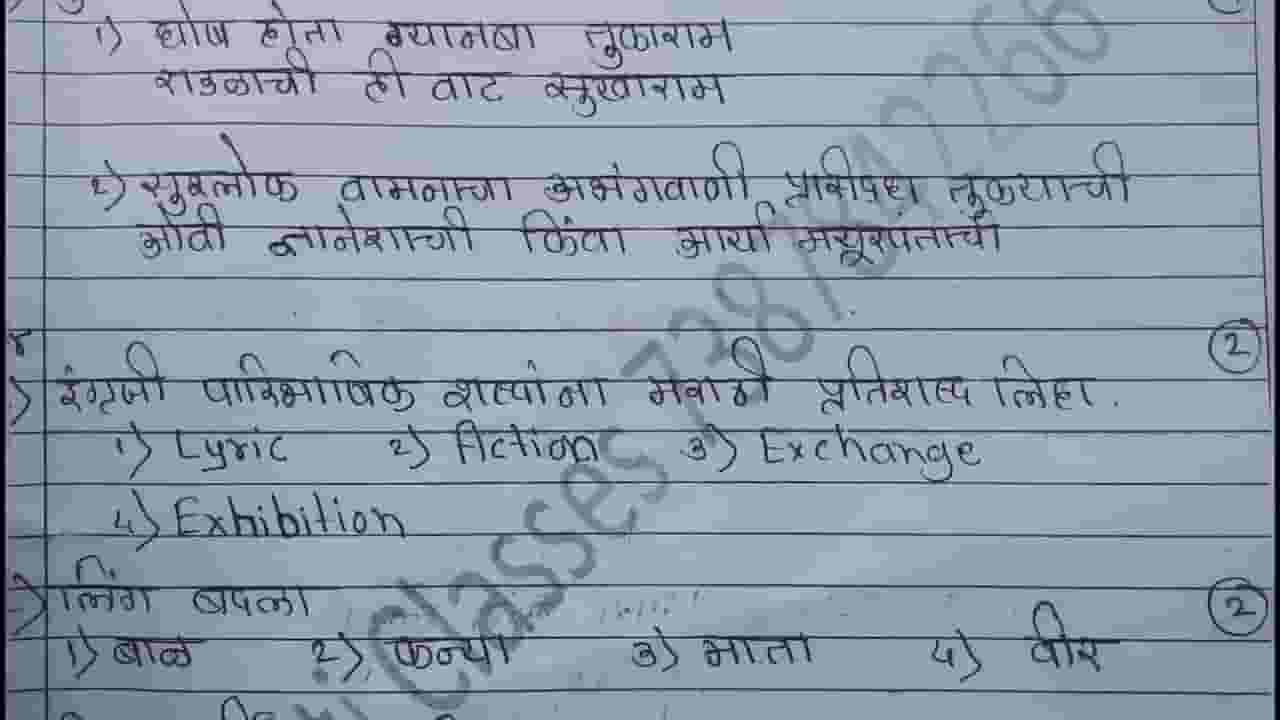 १) घोष होता ग्यानबा तुकाराम
राउळाची ही वाट सुखाराम
२) सुश्लोक वामनाचा अभंगवाणी प्रसिध्द तुकयाची
ओवी ज्ञानेशाची किंवा आर्या मयूरपंतांची
इंग्रजी पारिभाषिक शब्दांना मराठी प्रतिशब्द लिहा.
2
1) Lyric 2) Fiction 3) Exchange
4) Exhibition
लिंग बदला
2
1) बाळ 2) कन्या 3) माता 4) वीर
Classes 7387